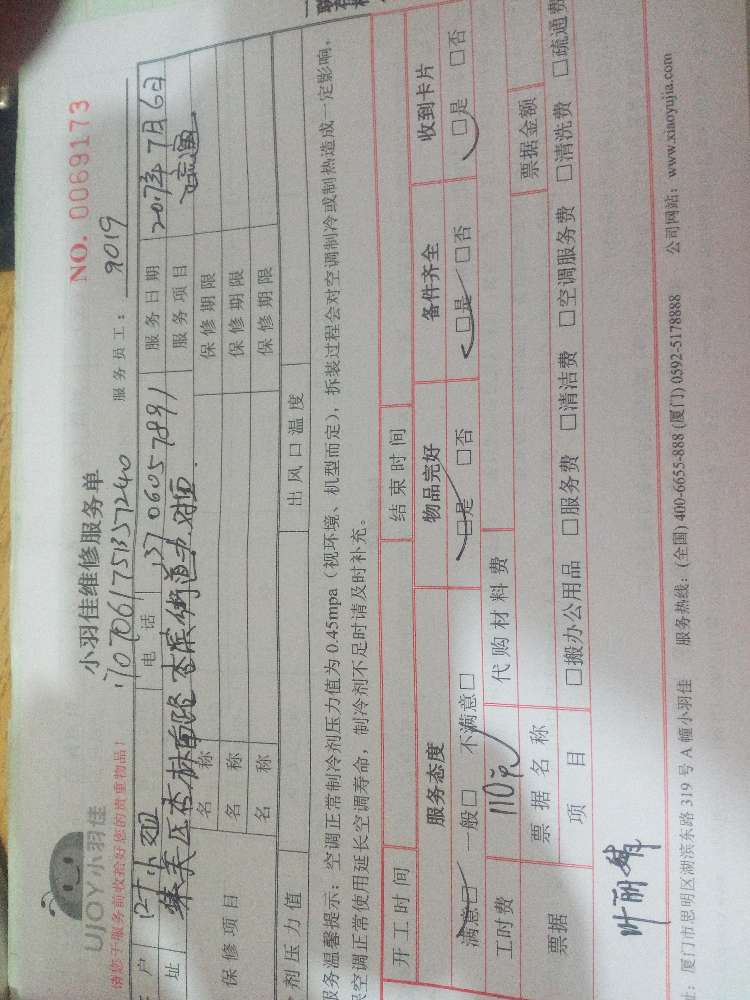 UJOY小羽佳
小羽佳维修服务单
NO. 0069173
请您于服务前收拾好您的贵重物品！
服务员工：9019
户 叶小姐 电话 服务日期 2017年7月6日
址 集美区杏林南路杏滨街道办对面. 服务项目
保修项目 名称 保修期限
名称 保修期限
名称 保修期限
剂压力值 出风口温度
服务温馨提示：空调正常制冷剂压力值为 0.45mpa（视环境、机型而定），拆装过程会对空调制冷或制热造成一定影响，
空调正常使用延长空调寿命，制冷剂不足时请及时补充。
开工时间 结束时间
服务态度 物品完好 备件齐全 收到卡片
满意□ 一般□ 不满意□ □是 □否 □是 □否 □是 □否
工时费 110元 代购材料费
票据 票据名称 票据金额
项目 □搬办公用品 □服务费 □清洁费 □空调服务费 □清洗费 □疏通费
叶丽
址：厦门市思明区湖滨东路 319 号 A 幢小羽佳 服务热线：(全国) 400-6655-888 (厦门) 0592-5178888 公司网站：www.xiaoyujia.com